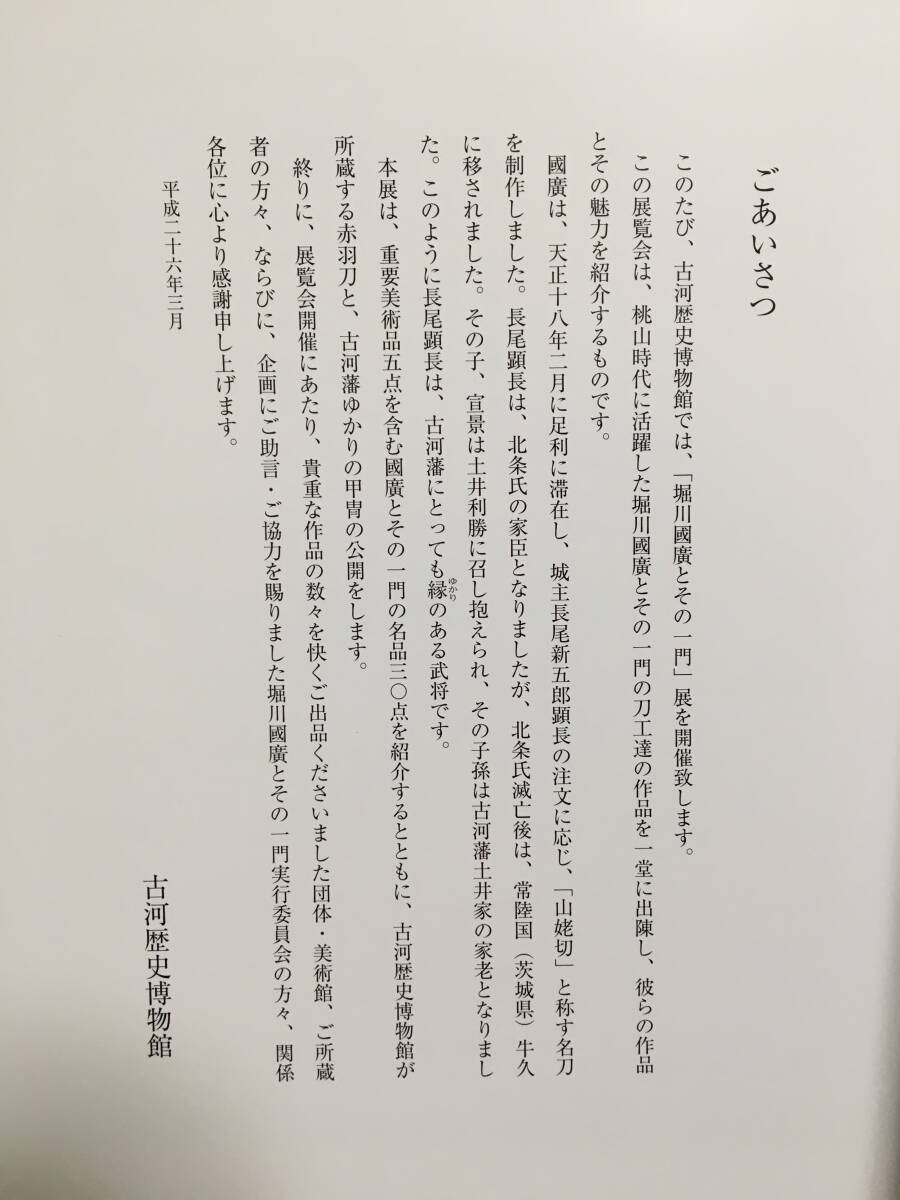 ごあいさつ
このたび、古河歴史博物館では、「堀川國廣とその一門」展を開催致します。
この展覧会は、桃山時代に活躍した堀川國廣とその一門の刀工達の作品を一堂に出陳し、彼らの作品
とその魅力を紹介するものです。
國廣は、天正十八年二月に足利に滞在し、城主長尾新五郎顕長の注文に応じ、「山姥切」と称す名刀
を制作しました。長尾顕長は、北条氏の家臣となりましたが、北条氏滅亡後は、常陸国（茨城県）牛久
に移されました。その子、宣景は土井利勝に召し抱えられ、その子孫は古河藩土井家の家老となりまし
た。このように長尾顕長は、古河藩にとっても縁ゆかりのある武将です。
本展は、重要美術品五点を含む國廣とその一門の名品三〇点を紹介するとともに、古河歴史博物館が
所蔵する赤羽刀と、古河藩ゆかりの甲冑の公開をします。
終りに、展覧会開催にあたり、貴重な作品の数々を快くご出品くださいました団体・美術館、ご所蔵
者の方々、ならびに、企画にご助言・ご協力を賜りました堀川國廣とその一門実行委員会の方々、関係
各位に心より感謝申し上げます。
平成二十六年三月
古河歴史博物館